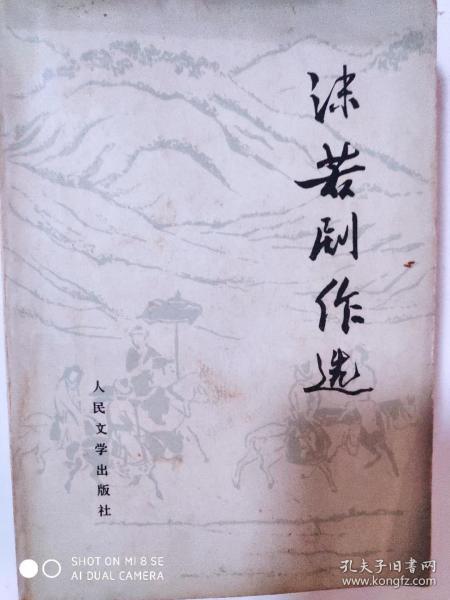 沫若剧作选
人民文学出版社
SHOT ON MI 8 SE
AI DUAL CAMERA
孔夫子旧书网
www.kongfz.com